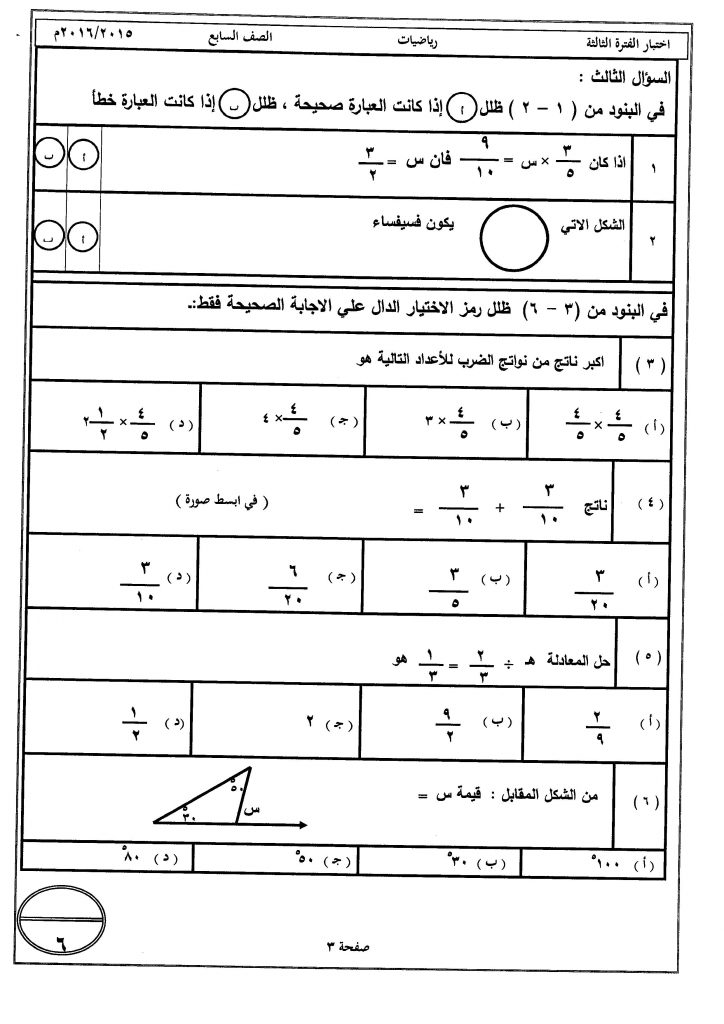 اختبار الفترة الثالثة رياضيات الصف السابع ٢٠١٦/٢٠١٥م
السؤال الثالث :
في البنود من ( ١ – ٢ ) ظلل أ إذا كانت العبارة صحيحة ، ظلل ب إذا كانت العبارة خطأ
١ اذا كان ٣/٥ × س = ٩/١٠ فان س = ٣/٢ أ ب
٢ الشكل الاتي يكون فسيفساء أ ب
في البنود من (٣ – ٦) ظلل رمز الاختيار الدال علي الاجابة الصحيحة فقط:ـ
(٣) اكبر ناتج من نواتج الضرب للأعداد التالية هو
(أ) ٤/٥ × ٤/٥ (ب) ٤/٥ × ٣ (ج) ٤/٥ × ٤ (د) ٤/٥ × ٢ ١/٢
(٤) ناتج ٣/١٠ + ٣/١٠ = ( في ابسط صورة )
(أ) ٣/٢٠ (ب) ٣/٥ (ج) ٦/٢٠ (د) ٣/١٠
(٥) حل المعادلة هـ ÷ ٢/٣ = ١/٣ هو
(أ) ٢/٩ (ب) ٩/٢ (ج) ٢ (د) ١/٢
(٦) من الشكل المقابل : قيمة س =
٥٠°
٣٠°
س
(أ) ١٠٠° (ب) ٣٠° (ج) ٥٠° (د) ٨٠°
٦
صفحة ٣